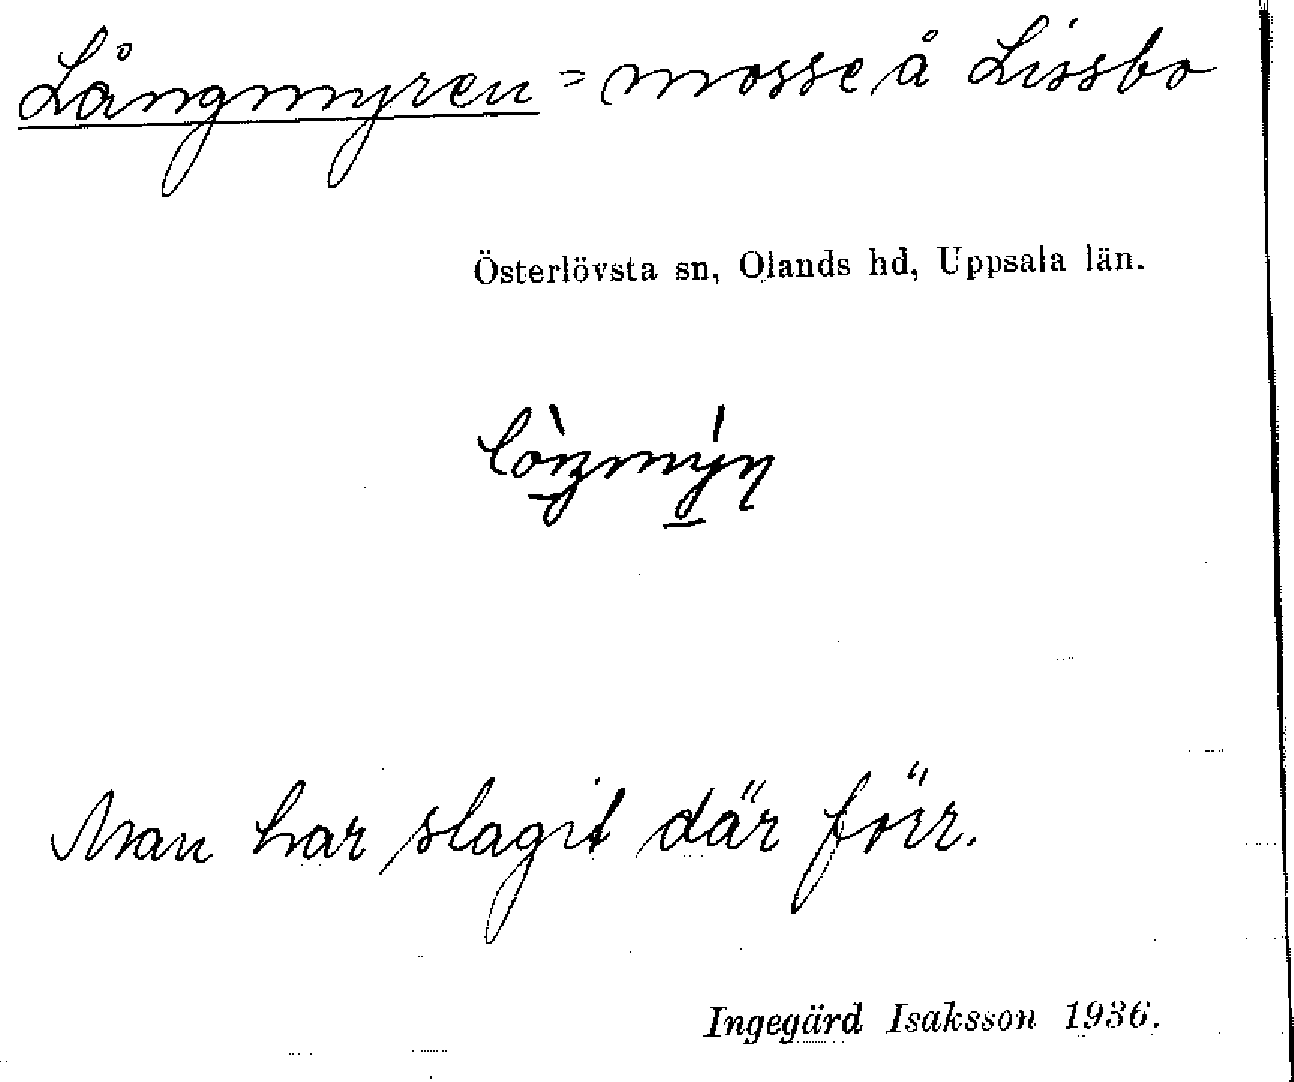 Långmyren = mosse å Lissbo
Österlövsta sn, Olands hd, Uppsala län.
Man har slagit där förr.
Ingegärd Isaksson 1936.